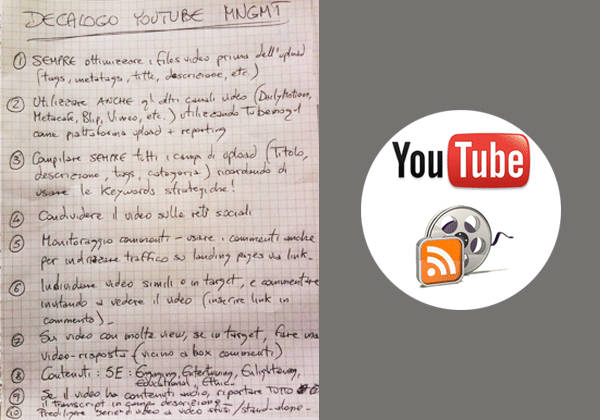 DECALOGO YOUTUBE MNGMT
① SEMPRE ottimizzare i files video prima dell'upload
(tags, metatags, title, descrizione, etc.)
② Utilizzare ANCHE gli altri canali video (DailyMotion,
Metacafe, Blip, Vimeo, etc.) utilizzando Tubemogul
come piattaforma upload + reporting
③ Compilare SEMPRE tutti i campi di upload (Titolo,
descrizione, tags, categoria) ricordando di
usare le Keywords strategiche!
④ Condividere il video sulle reti sociali
⑤ Monitoraggio commenti - usare i commenti anche
per indirizzare traffico su landing pages via link.
⑥ Individuare video simili o in target, e commentare
invitando a vedere il video (inserire link in
commento).
⑦ Su video con molte view, se in target, fare una
video-risposta (vicino a box commenti)
⑧ Contenuti: 5E: Engaging, Entertaining, Enlightening,
Educational, Ethic.
⑨ Se il video ha contenuti audio, riportare TUTTO
il transcript in campo descrizione
⑩ Prediligere serie di video a video stand-alone.
You Tube